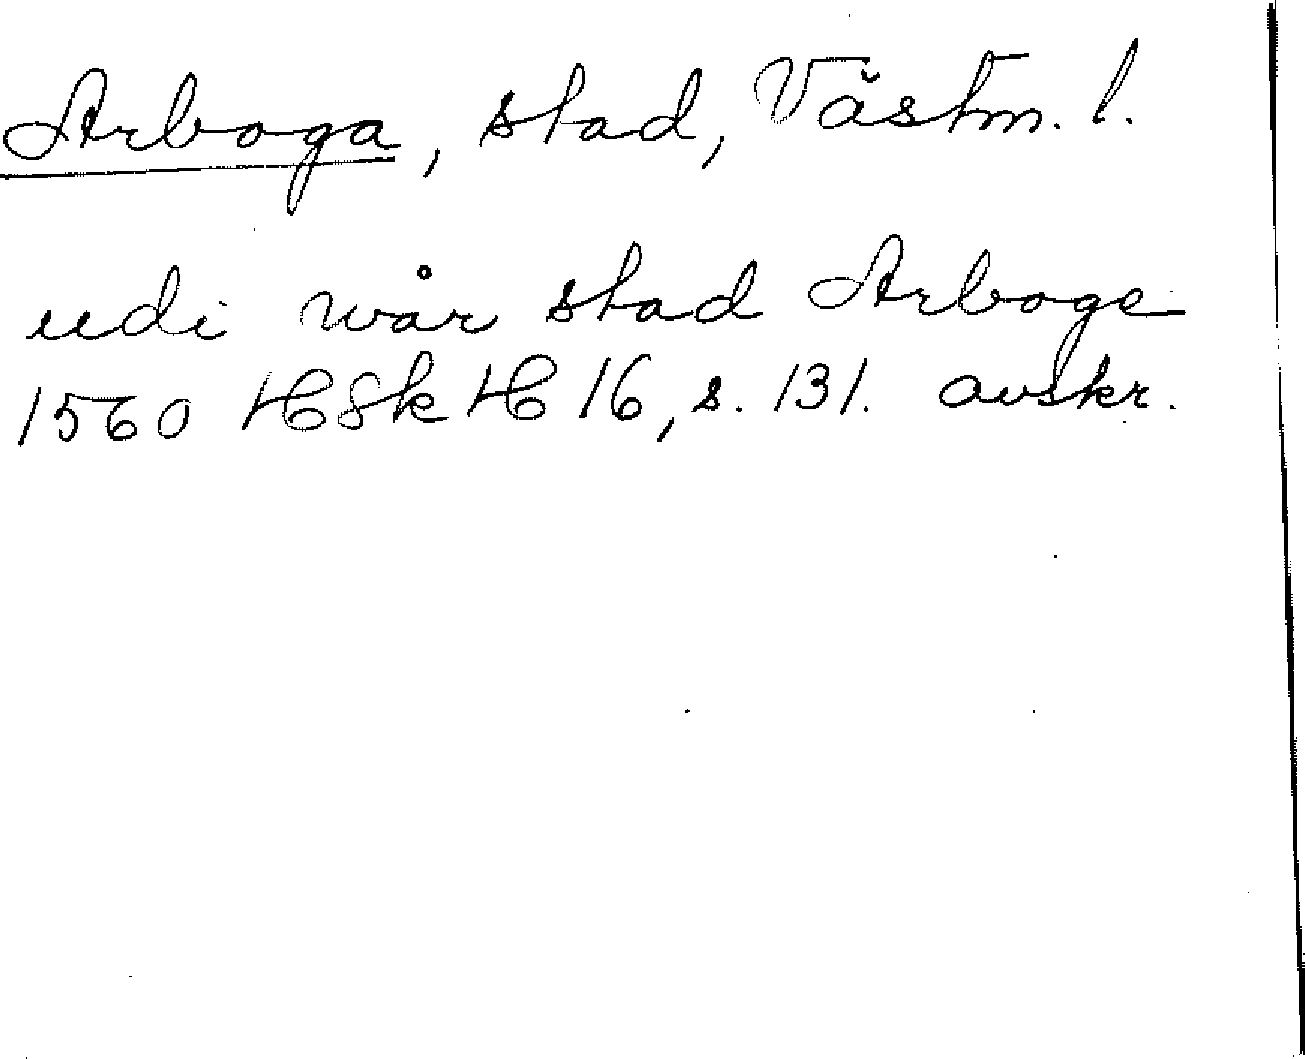 Arboga, stad, Västm. l.
udi wår stad Arboge
1560 HSkH 16, s. 131. avskr.